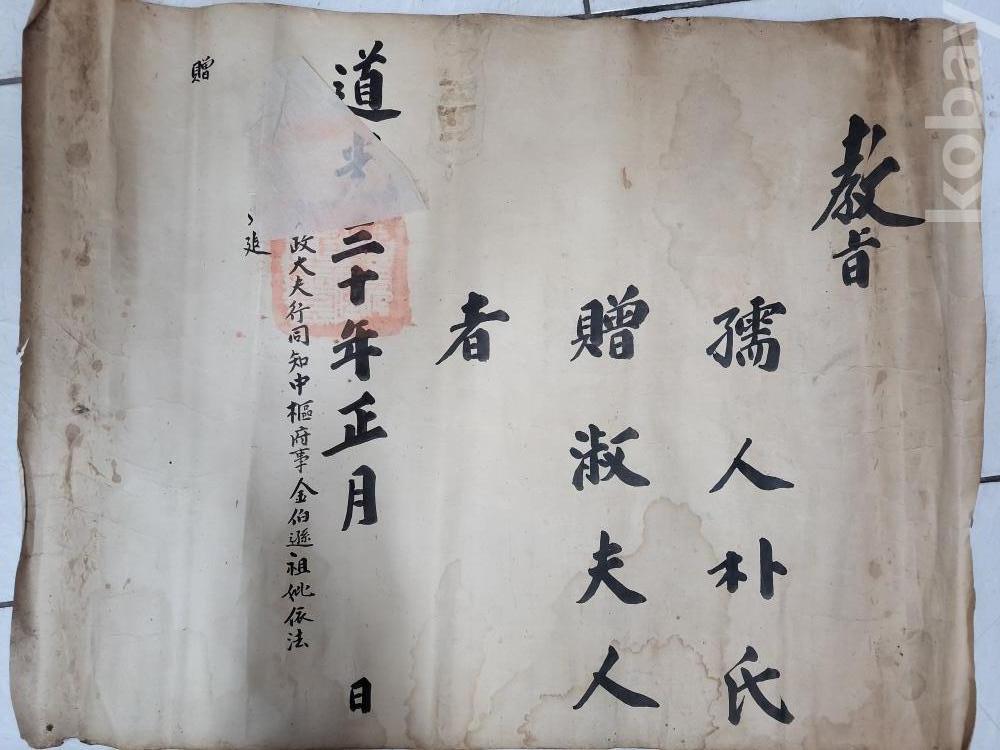 敎旨
孺人朴氏
贈淑夫人
者
道光二十年正月 日
政大夫行同知中樞府事金伯遜祖妣依法
追
贈
kobay